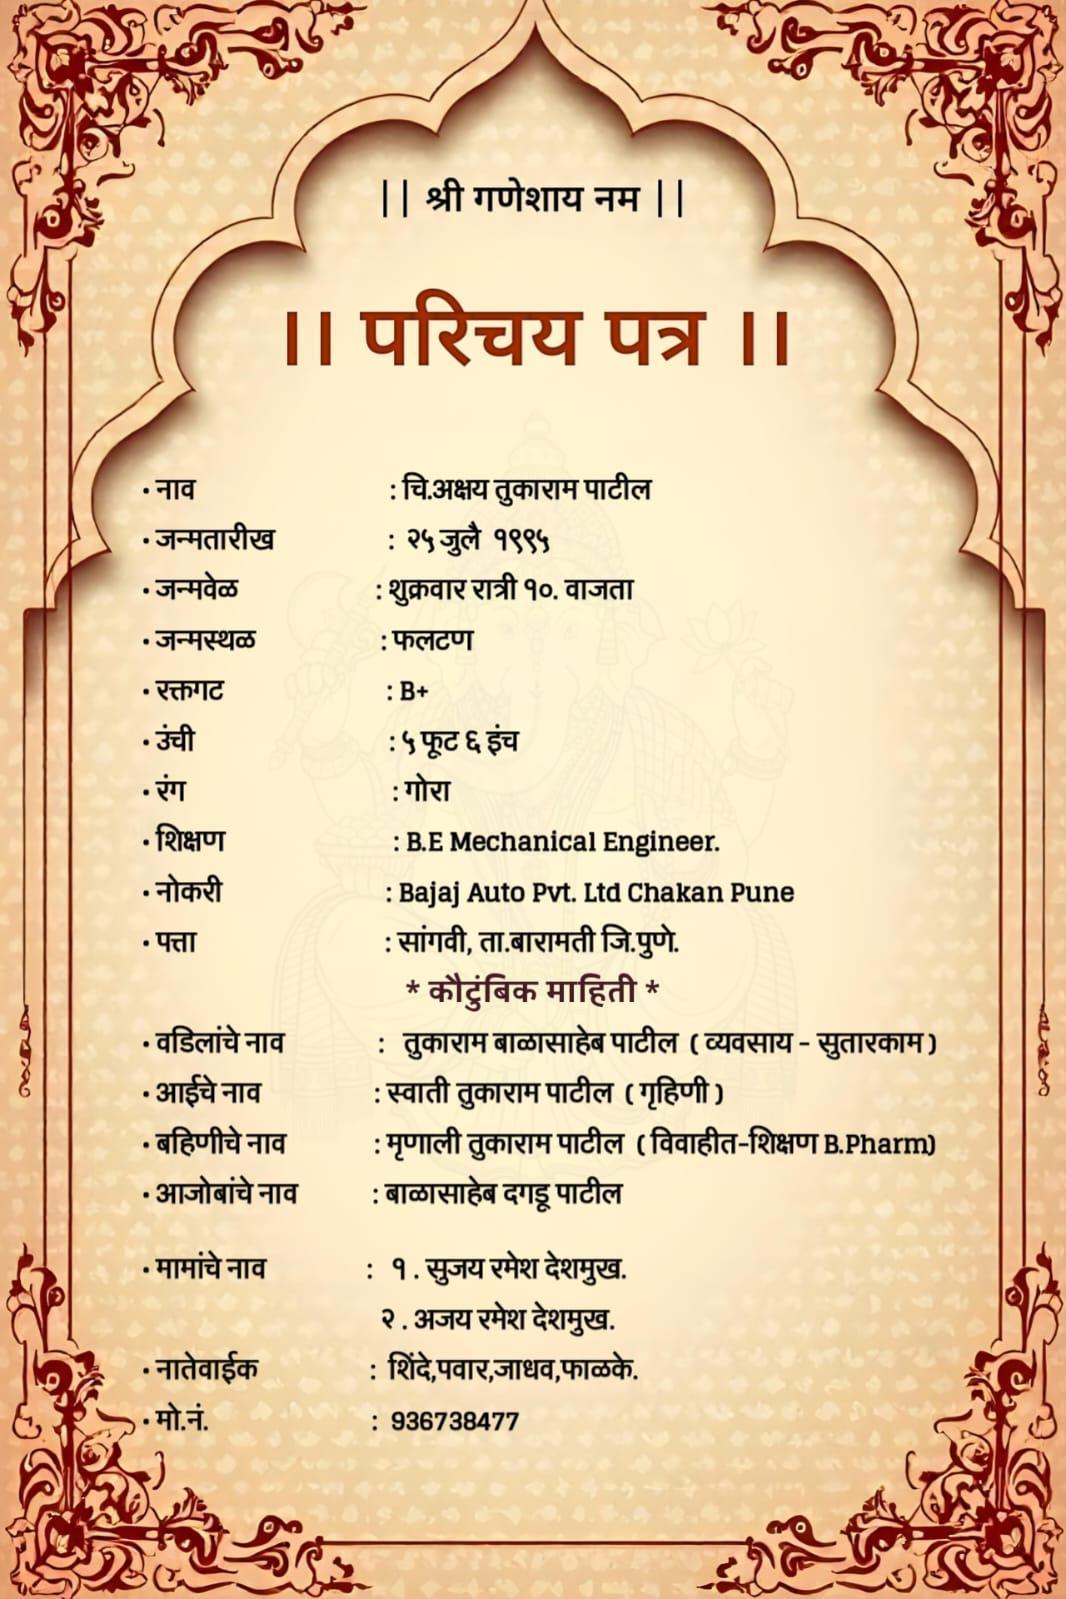 || श्री गणेशाय नम ||
।। परिचय पत्र ।।
• नाव : चि.अक्षय तुकाराम पाटील
• जन्मतारीख : २५ जुलै १९९५
• जन्मवेळ : शुक्रवार रात्री १०. वाजता
• जन्मस्थळ : फलटण
• रक्तगट : B+
• उंची : ५ फूट ६ इंच
• रंग : गोरा
• शिक्षण : B.E Mechanical Engineer.
• नोकरी : Bajaj Auto Pvt. Ltd Chakan Pune
• पत्ता : सांगवी, ता.बारामती जि.पुणे.
* कौटुंबिक माहिती *
• वडिलांचे नाव : तुकाराम बाळासाहेब पाटील ( व्यवसाय - सुतारकाम )
• आईचे नाव : स्वाती तुकाराम पाटील ( गृहिणी )
• बहिणीचे नाव : मृणाली तुकाराम पाटील ( विवाहीत-शिक्षण B.Pharm)
• आजोबांचे नाव : बाळासाहेब दगडू पाटील
• मामांचे नाव : १ . सुजय रमेश देशमुख.
२ . अजय रमेश देशमुख.
• नातेवाईक : शिंदे,पवार,जाधव,फाळके.
• मो.नं. : 936738477